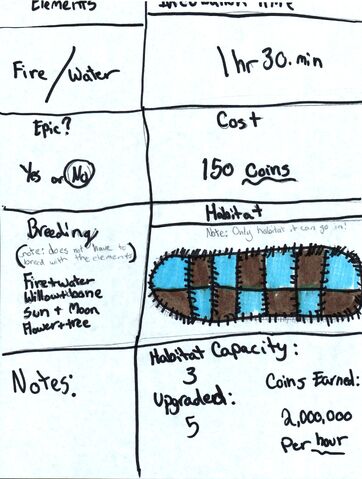 Elements
Incubation Time
Fire / Water
1 hr 30. min
Epic?
Yes or No
Cost
150 Coins
Breeding
(note: does not have to
breed with the elements)
Fire + water
Willow + bone
Sun + Moon
Flower + tree
Habitat
Note: Only habitat it can go in!
Notes:
Habitat Capacity:
3
Upgraded:
5
Coins Earned:
2,000,000
Per hour